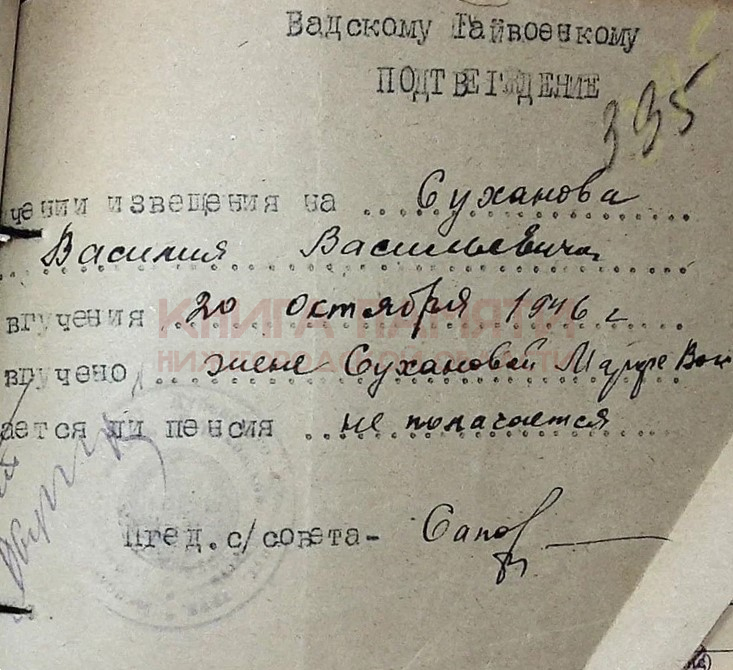 Вадскому Райвоенкому
ПОДТВЕРЖДЕНИЕ
335
чении извещения на Суханова
Василия Васильевича
вручения 20 октября 1946 г
вручено жене Сухановой Марфе
ается ли пенсия не полачается
Пред. с/совета- Сапов
КНИГА ПАМЯТИ
НИЖЕГОРОДСКОЙ ОБЛАСТИ